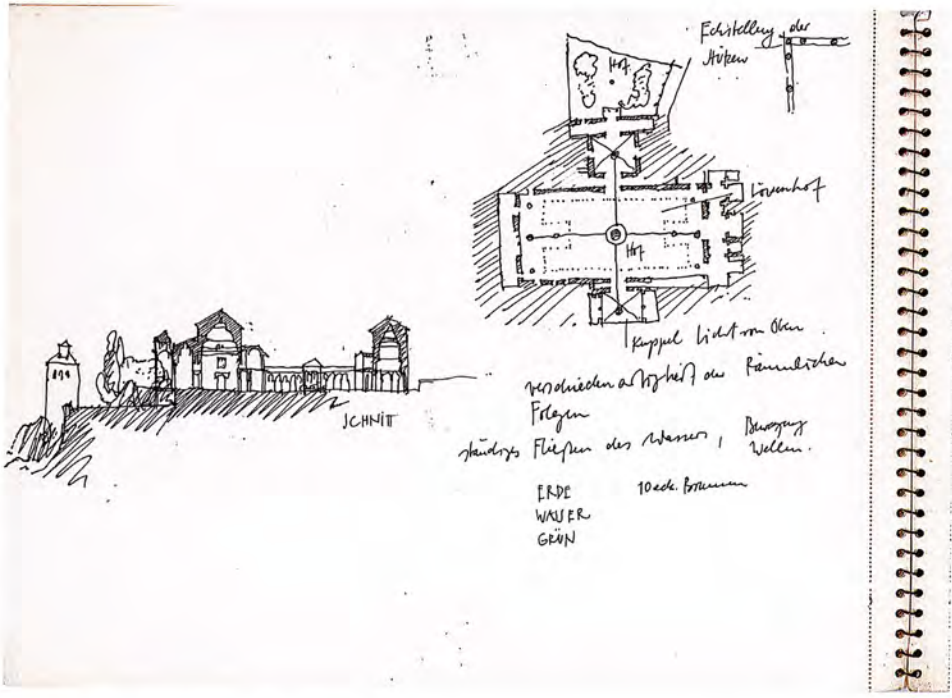 Eckstellung der
Stützen
Hof
Löwenhof
Hof
Kuppel Licht von Oben
SCHNITT
verschiedenartigkeit der Räumlichen
Folgen
ständiges Fließen des Wassers, Bewegung
Wellen.
ERDE
10 eck. Brunnen
WASSER
GRÜN